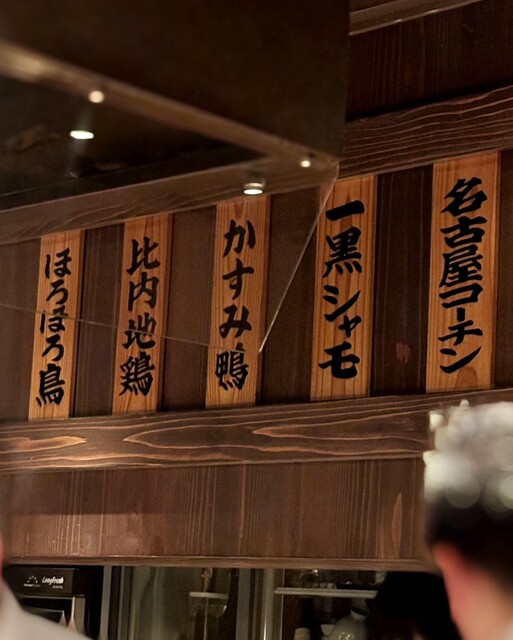 名古屋コーチン
一黒シャモ
かすみ鴨
比内地鶏
ほろほろ鳥
Longfresh